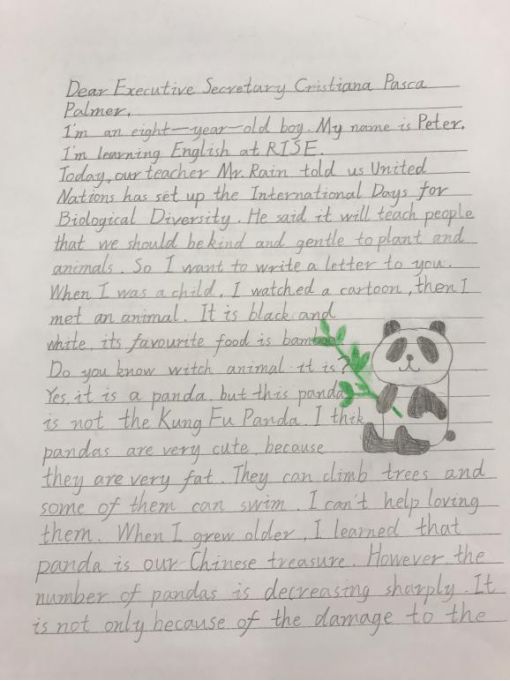 Dear Executive Secretary Cristiana Pasca
Palmer,
I'm an eight-year-old boy. My name is Peter.
I'm learning English at RISE.
Today, our teacher Mr. Rain told us United
Nations has set up the International Days for
Biological Diversity. He said it will teach people
that we should be kind and gentle to plant and
animals. So I want to write a letter to you.
When I was a child, I watched a cartoon, then I
met an animal. It is black and
white, its favourite food is bamboo.
Do you know witch animal it is?
Yes, it is a panda, but this panda
is not the Kung Fu Panda. I thik
pandas are very cute, because
they are very fat. They can climb trees and
some of them can swim. I can't help loving
them. When I grew older, I learned that
panda is our Chinese treasure. However, the
number of pandas is decreasing sharply. It
is not only because of the damage to the